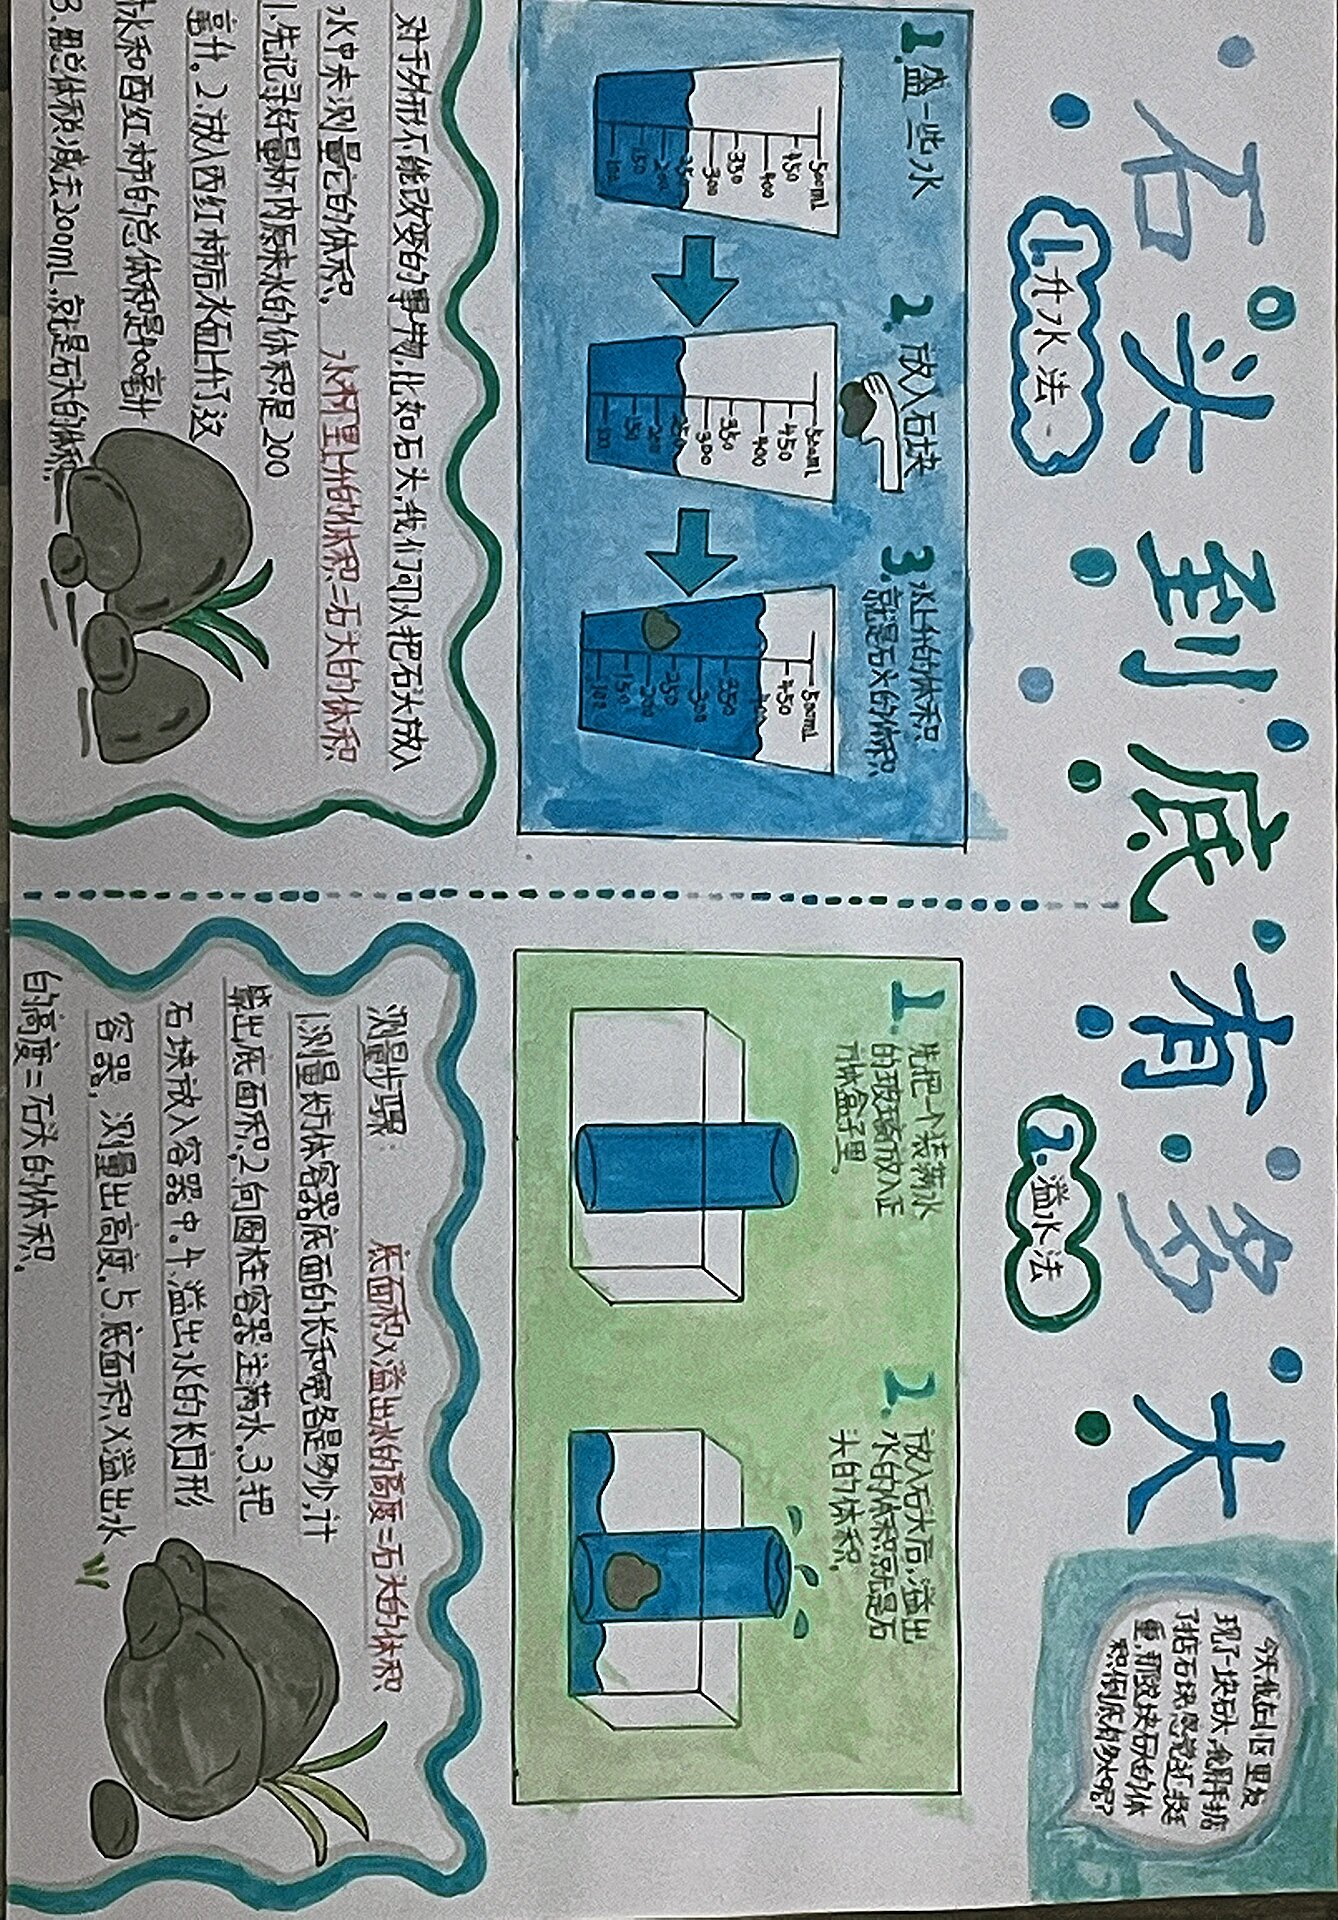 石头到底有多大
今天我在小区里发
现了一块石头,我用手掂
了掂石块,感觉挺
重,那这块石头的体
积到底有多大呢?
1.升水法
1.盛一些水
500ml
450
400
350
300
250
200
150
100
2.放入石块
500ml
450
400
350
300
250
200
150
100
3.水上升的体积
就是石头的体积
500ml
450
400
350
300
250
200
150
100
对于外形不能改变的事物,比如石头,我们可以把石头放入
水中来测量它的体积。 水杯里上升的体积=石头的体积
1.先记录好量杯内原来水的体积是200
毫升。2.放入西红柿后水面上升了这
水和西红柿的总体积是400毫升
3.用总体积减去200ml,就是石头的体积.
2.溢水法
1.先把一个装满水
的玻璃放入正
方体盒子里.
2.放入石头后,溢出
水的体积就是石
头的体积.
测量步骤: 底面积×溢出水的高度=石头的体积
1.测量长方体容器底面的长和宽各是多少,计
算出底面积.2.向圆柱容器注满水.3.把
石块放入容器中.4.溢出水的长
容器,测量出高度.5.底面积×溢出水
的高度=石头的体积.